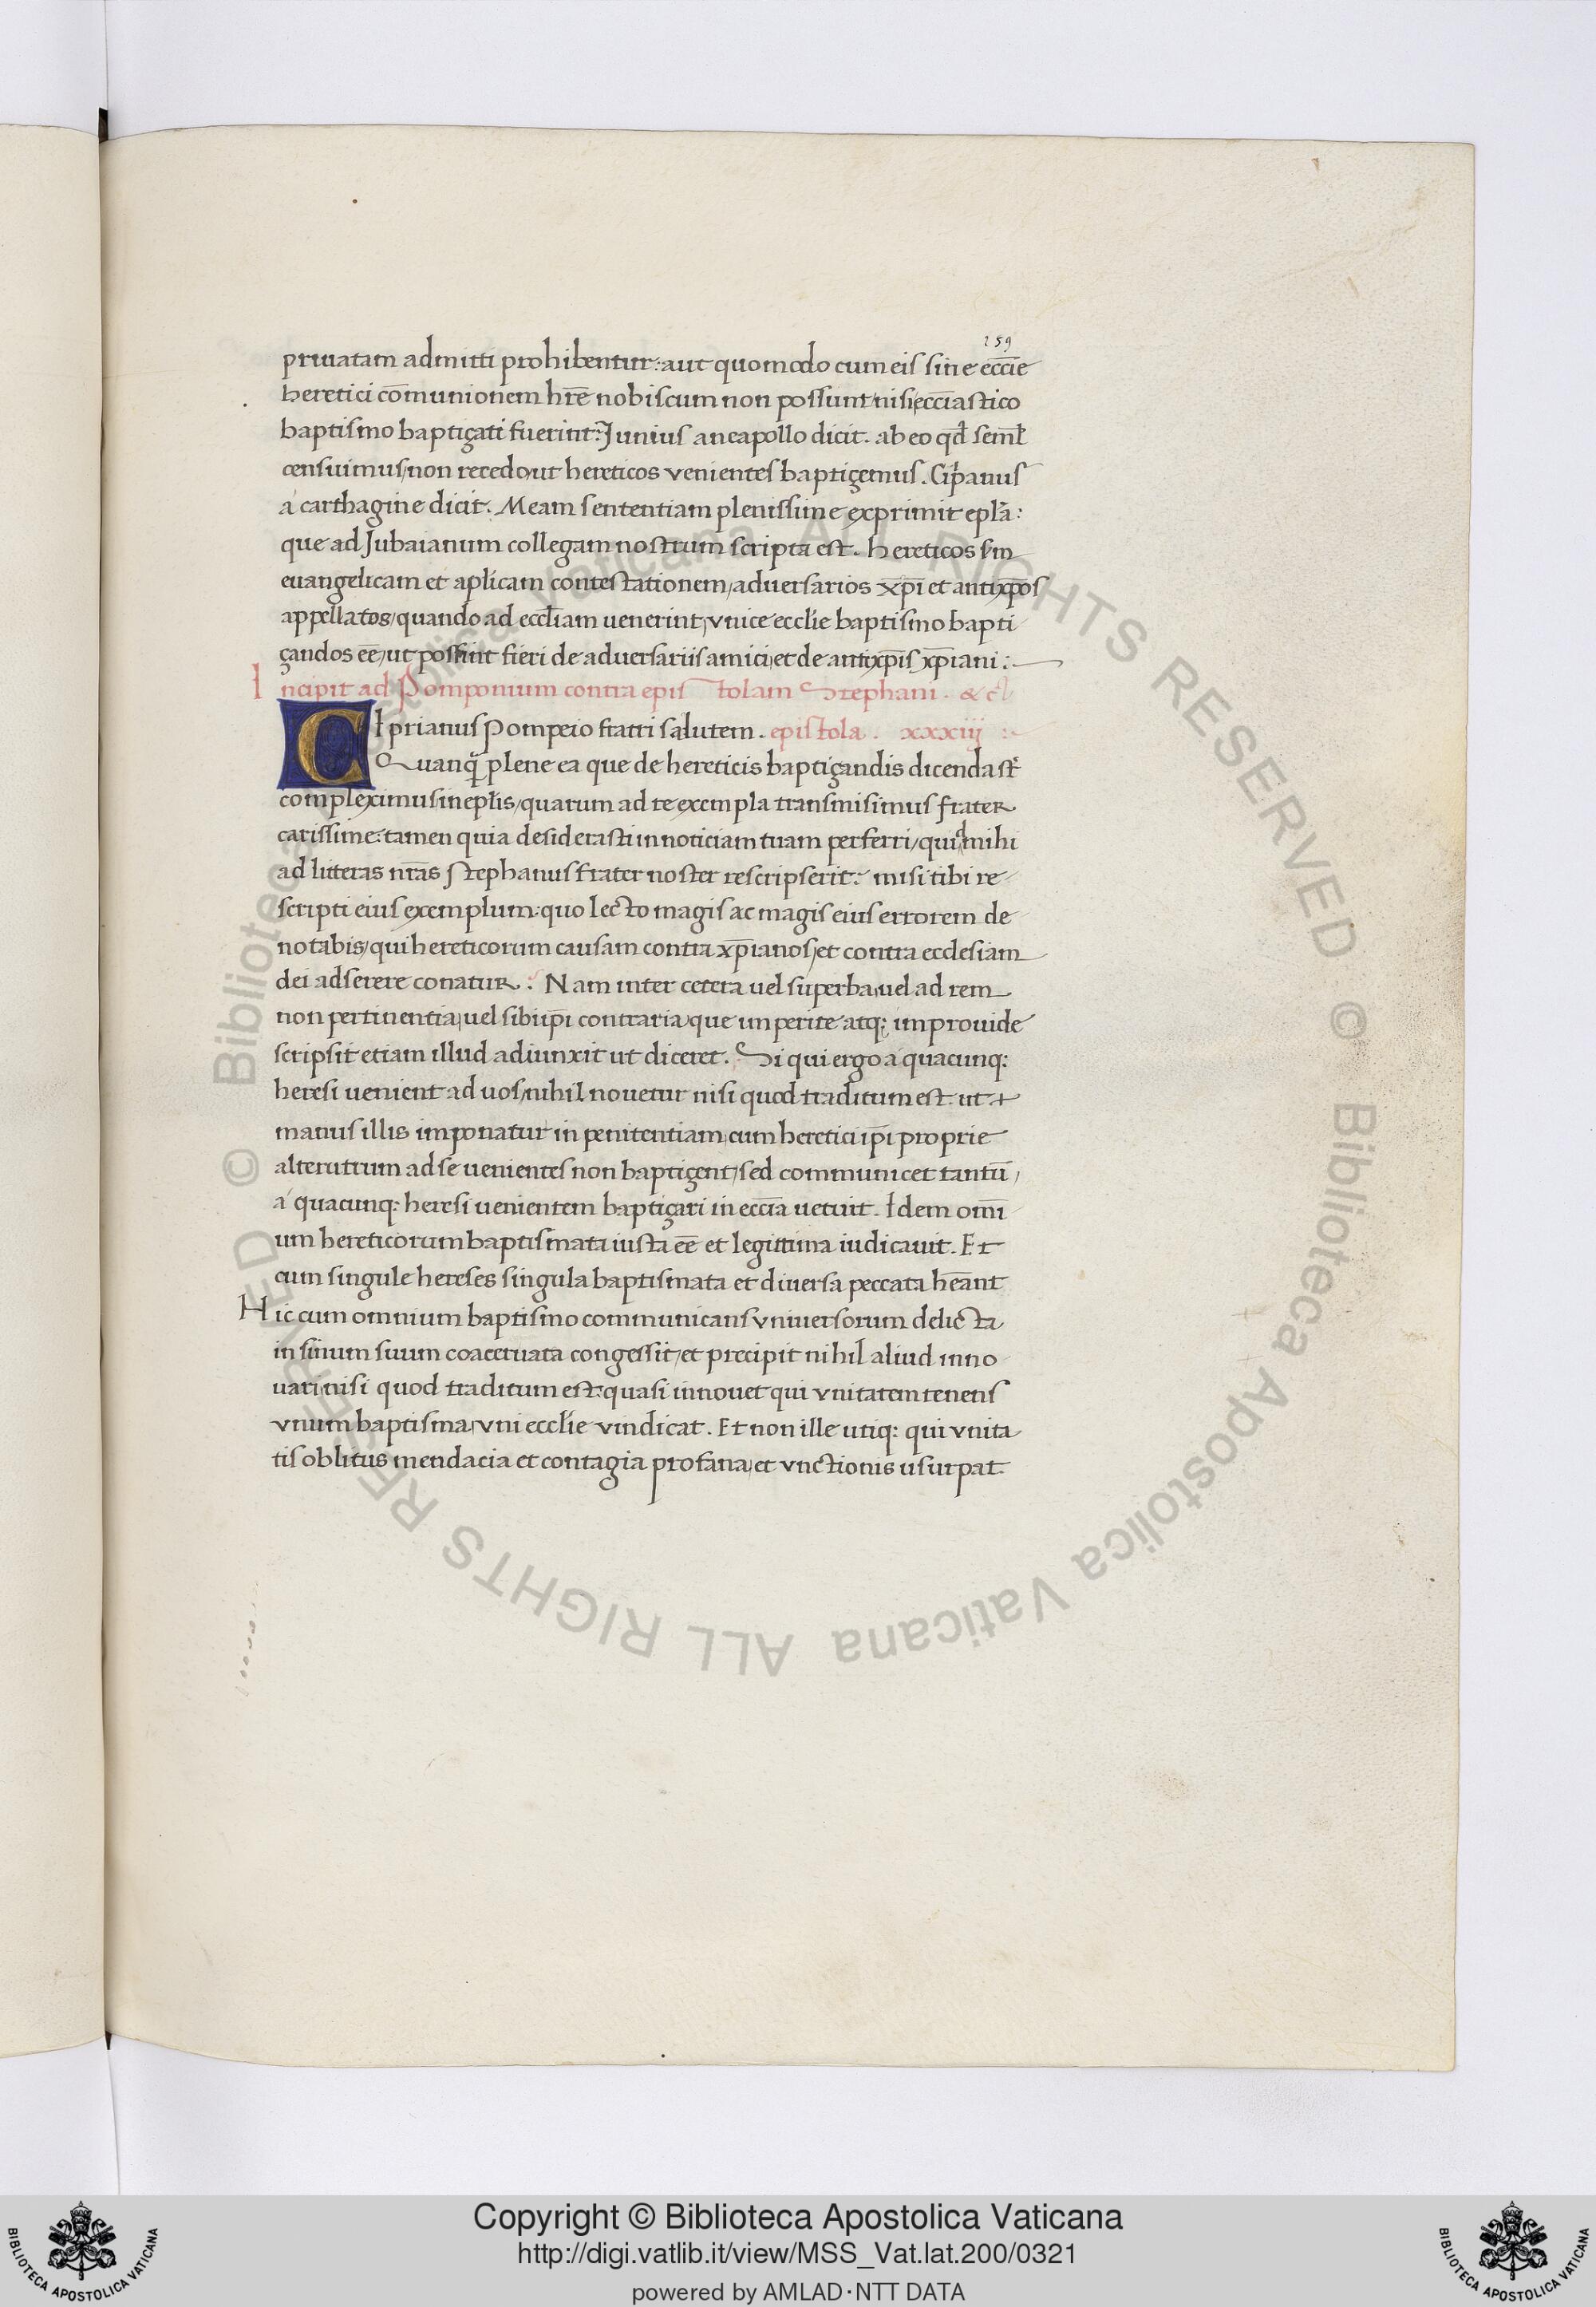 159
priuatam admitti prohibentur: aut quomodo cum eis siue eccīe
heretici cōmunionem hr̄e nobiscum non possunt, nisi ecc̄iastico
baptismo baptiçati fuerint: Junius a neapollo dicit. ab eo qd̄ seml̄
censuimus, non recedo, ut hereticos venientes baptiçemus. Cip̄anus
a carthagine dicit. Meam sententiam plenissime exprimit epl̄a:
que ad Jubaianum collegam nostrum scripta est. hereticos s̄m
euangelicam et apl̄icam contestationem, aduersarios xp̄i et antixp̄os
appellatos, quando ad eccl̄iam uenerint, vnice eccl̄ie baptismo bapti
çandos eē, ut possint fieri de aduersariis amici, et de antixp̄is xp̄iani:
Incipit ad Pomponium contra epistolam Stephani. &c̄
CIprianus Pompeio fratri salutem. epistola. xxxiij :
Quanq̄ plene ea que de hereticis baptiçandis dicenda st̄
complexi­mus in epl̄is, quarum ad te exempla transmisimus frater
carissime: tamen quia desiderasti in noticiam tuam perferri, quid mihi
ad litteras nr̄as Stephanus frater noster rescripserit: misi tibi re
scripti eius exemplum: quo lecto magis ac magis eius errorem de
notabis, qui hereticorum causam contra xp̄ianos, et contra ecclesiam
dei adserere conatur. Nam inter cetera uel superba, uel ad rem
non pertinentia, uel sibi ip̄i contraria, que imperite atq; improuide
scripsit etiam illud adiunxit ut diceret. Si qui ergo a quacunq;
heresi uenient ad uos, nihil nouetur nisi quod traditum est ut
manus illis imponatur in penitentiam, cum heretici ip̄i proprie
alterutrum ad se uenientes non baptiçent, sed communicet tantū,
a quacunq; heresi uenientem baptiçari in eccīa uetuit. Idem omī
um hereticorum baptismata iusta eē et legittima iudicauit. Et
cum singule hereses singula baptismata et diuersa peccata hēant
Hic cum omnium baptismo communicans vniuersorum delicta
in sinum suum coaceruata congessit, et precipit nihil aliud inno
uari, nisi quod traditum est: quasi innouet qui vnitatem tenens
vnum baptisma, vni eccl̄ie vindicat. Et non ille utiq; qui vnita
tis oblitus mendacia et contagia profana, et vnctionis usurpat.
© Biblioteca Apostolica Vaticana ALL RIGHTS RESERVED © Biblioteca Apostolica Vaticana ALL RIGHTS RESERVED
Copyright © Biblioteca Apostolica Vaticana
http://digi.vatlib.it/view/MSS_Vat.lat.200/0321
powered by AMLAD·NTT DATA
BIBLIOTECA APOSTOLICA VATICANA
BIBLIOTECA APOSTOLICA VATICANA